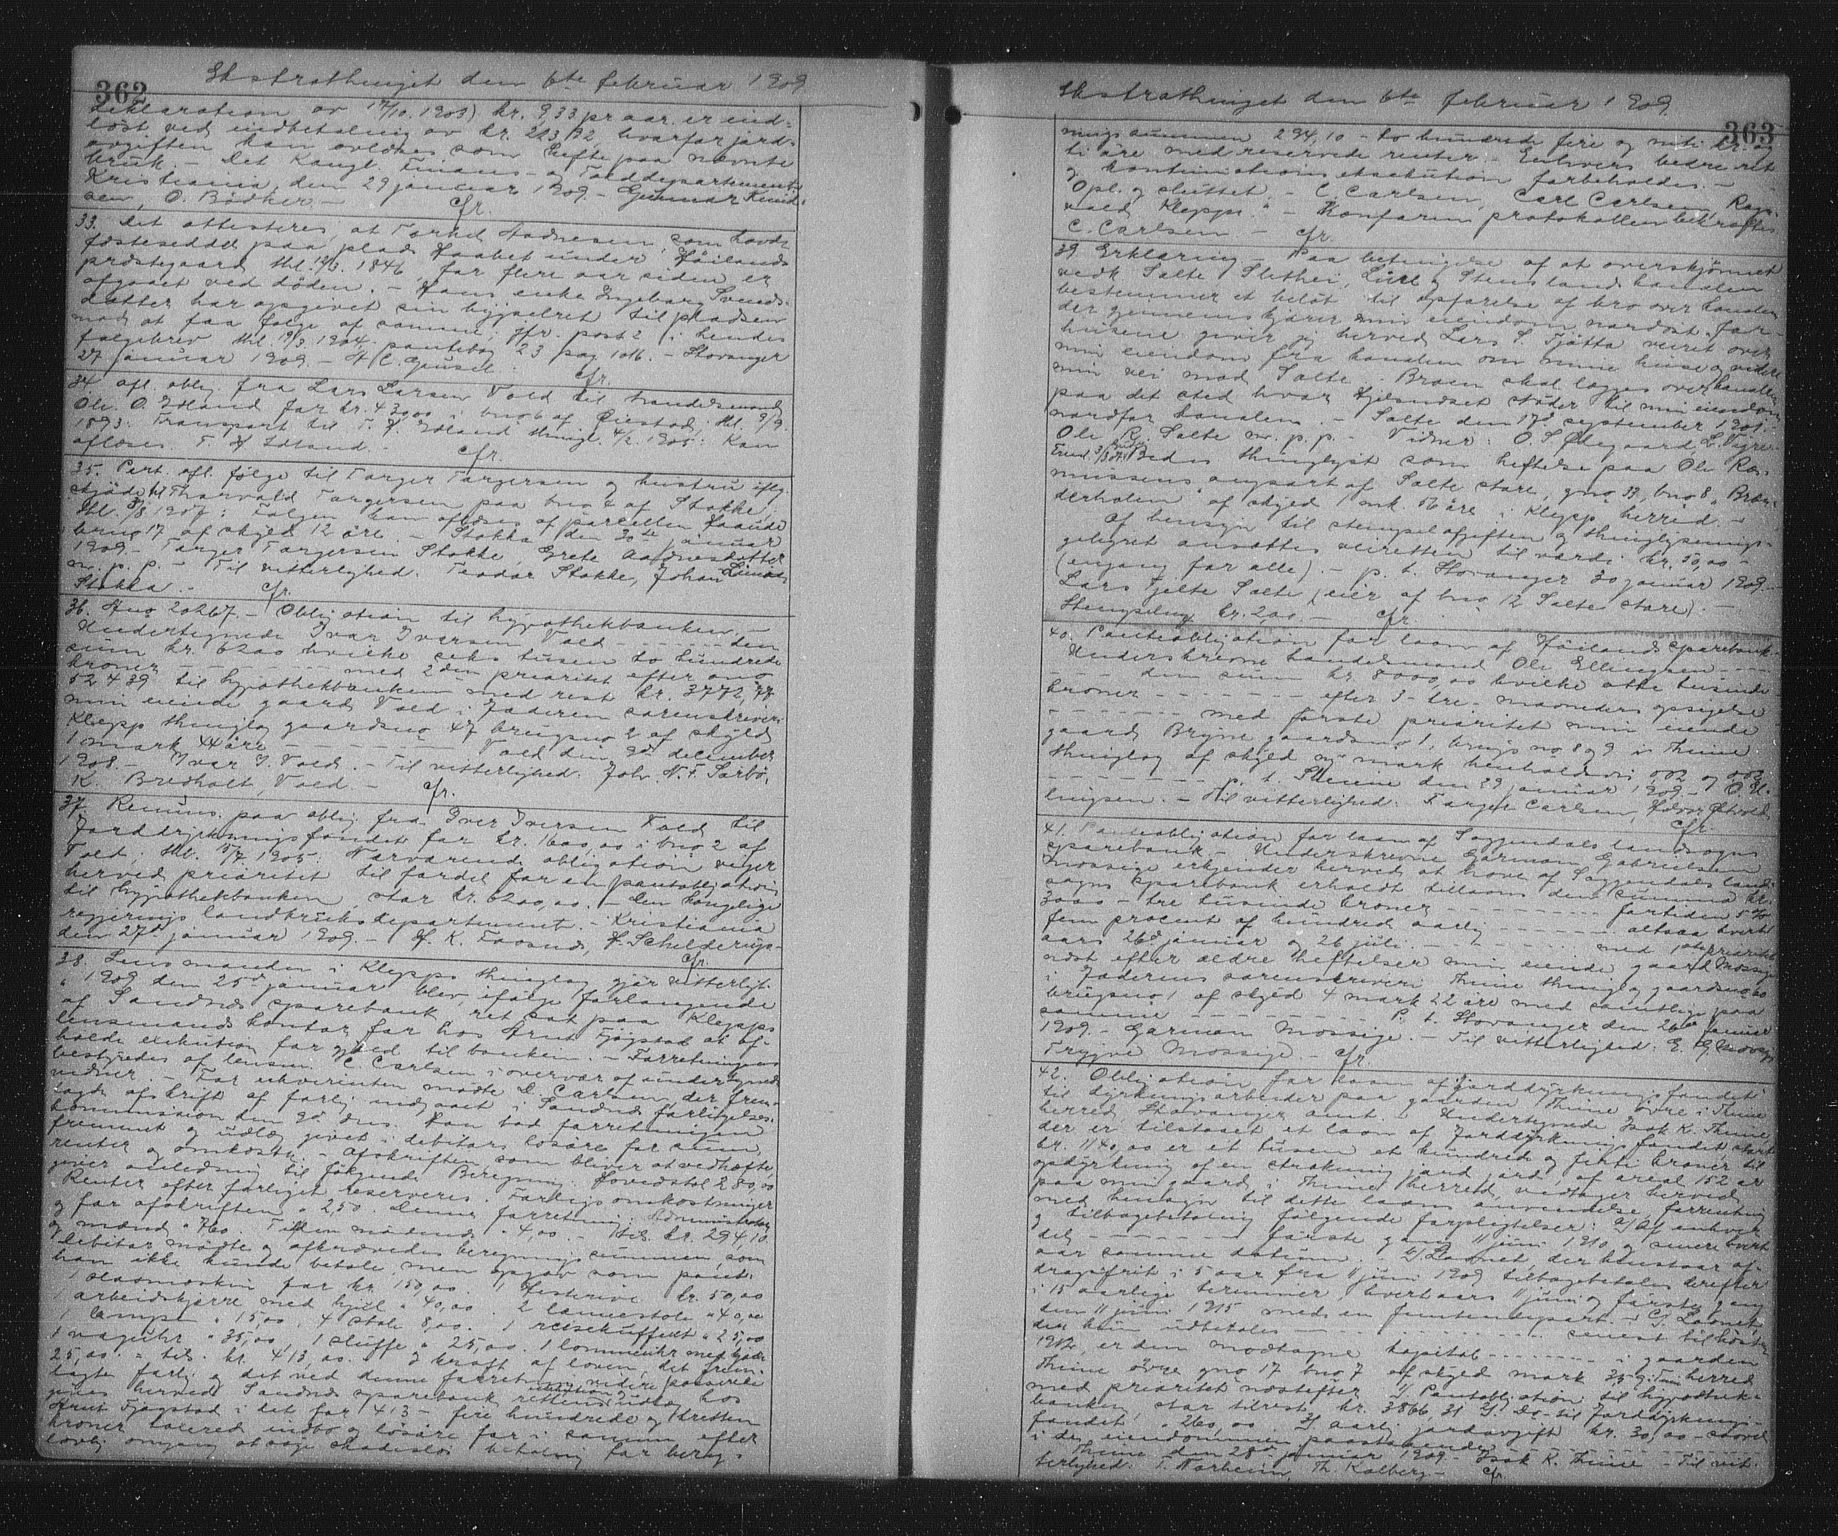 362
Ekstrathinget den 6te februar 1909
deklaration av 17/10.1903) kr. 9,33 pr aar er ind-
løst ved indbetaling av kr. 213/32, hvorfor jord-
avgiften kan avløses som hefte paa nævnte
bruk. - Det Kongl. Finans- og Tolddepartement
Kristiania, den 29 januar 1909 - Gunnar Knud-
sen, O. Bødker. - Cfr.
33. Det attesteres, at Torkel Aadnesen, som havde
fæsteseddel paa plads Haabet under Høilands
præstegaard thl. 1846, for flere aar siden er
afgaaet ved døden. - Hans enke Ingeborg Svends-
datter har opgivet sin bygselret til pladsen
mod at faa følge af samme, jfr. post 2 i hendes
følgebrev thl. 19/3 1904, pantebog 23 pag 1016. - Stavanger
27 januar 1909 - H. C. Gjusel. Cfr.
34. Afl. oblig. fra Lars Larsen Vold til handelsmand
Ole O. Idland for kr. 4300 i bno 6 af Øiestad, thl. 9/9
1893: Transport til T. H. Idland thingl. 4/2 1905: Kan
afløses. T. H. Idland. Cfr.
35. Pert. afl. følge til Torger Torgersen og hustru iflg.
skjøde til Thorvald Torgersen paa bno 2 af Stokke,
thl. 8/8 1907: Følgen kan afløses af parcellen Haande
brugno 17 af skyld 12 øre. - Stokka den 30te januar
1909 - Torger Torgersen Stokke, Grete Aadnesdatter
m. p. p. - Til vitterlighed: Teodor Stokke, Johan
Stokka. - Cfr.
36. Hno 20267. - Obligation til hypothekbanken. -
Undertegnede Ivar Iversen Vold - - - den
sum kr. 6200 hvilke seks tusen to hundrede
kroner - - - med 2den prioritet efter ano
52439 til hypothekbanken med rest kr. 3772,77
min eiende gaard Vold i Jæderen sorenskriveri
Klepp thinglag gaardsno 47 brugsno 2 af skyld
1 mark 44 øre - - - Vold den 9de december
1908. - Ivar I. Vold. - Til vitterlighed: Joh. N. F. Sørbø,
K. Bredholt, Vold - Cfr.
37. Reminis. paa oblig. fra Iver Iversen Vold til
Jorddyrkningsfondet for kr. 1600,00 i bno 2 af
Vold, thl. 5/7 1905: Nærværende obligation viger
herved prioritet til fordel for en pantobligation
til hypothekbanken, stor kr. 6200,00. - Den Kongelige
regjerings landbruksdepartement. - Kristiania
den 27de januar 1909. - H. K. Foosnæs, H. Schelderup
Cfr.
38. Lensmanden i Klepps thinglag gjør vitterligt:
1909 den 25de januar blev, ifølge forlangende
af Sandnæs sparebank, ret sat paa Klepps
lensmandskontor, for hos Arut Fjøgstad at af-
holde exekution for gjæld til banken. - Forretningen
bestyredes af lensm. C. Carlsen i overvær af undertegnede
vidner - For rekvirenten mødte D. Carlsen, der frem-
lagde afskrift af forlig indgaaet i Sandnæs forligelses-
kommission den 9de dns. Han bad forretningen
fremmet og udlæg givet i debitors løsøre for sum,
renter og omkostn. - Afskriften som bliver at vedhæfte
giver anledning til følgende Beregning: Hovedstol 280,00
Renter efter forliget reserveres. Forligsomkostninger
og for afskriften " 2,50. Denne forretning: Administrator
og mænd " 7,60. Til den mødende " 4,00. - tils. kr. 294,10.
Debitor mødte og afkrævedes beregningssummen, som
han ikke kunde betale men opgav som pant:
1 slaamaskin for kr. 150,00. 1 hesterive kr. 50,00
1 arbeidskjærre med hjul " 40,00. 2 lænestole " 40,00
1 lampe " 15,00, 4 stole 8,00. 1 reisekuffert " 25,00
1 væguhr " 35,00, 1 sluffe " 25,00. 1 lommeuhr med kjæde
25,00. = tils. kr. 413,00. - I kraft af loven, det frem-
lagte forlig og det ved denne forretning videre passerede
gives herved Sandnæs sparebank rettens udlæg hos
Arut Fjøgstad i det for 413 - fire hundrede og tretten
kroner taxered indbo og løsøre for i samme efter
lovlig omgang at søge skadesløs betaling for bereg-
363
Ekstrathinget den 6te februar 1909.
ningssummen 294,10 - to hundrede fire og niti kr. og
ti øre med reservede renter. - Enhvers bedre ret
og kontinuationseksekution forbeholdes. -
Opl. og sluttet. - C. Carlsen, Carl Carlsen, Rag-
vald Klepp. - Konform protokollen bekræftes
C. Carlsen - Cfr.
39. Erklæring - Paa betingelse af at overskjønnet
vedk. Salte Slethei, Lirel og Stenslandskanalen
bestemmer et beløb til opførelse af bro over kanalen
der gjennemskjærer min eiendom nordøst for
husene giver jeg herved Lars S. Tjøtta veiret over
min eiendom fra kanalen om mine huse og videre
min vei mod Salte. Broen skal lægges over kanalen
paa det sted hvor Hjelsandset støder til min eiendom
nordfor kanalen. - Salte den 17de september 1901.
Ole R. Salte m. p. p. - Vidner: O. S. Ølegaard, L. Vigre.
Bedes thinglyst som heftelse paa Ole Ras-
mussens anpart af Salte store, gno 33, bno 8, Bræn-
derholen af skyld 1 mk. 56 øre i Klepp herred. -
Af hensyn til stempelafgiften og thinglysnings-
gebyret ansættes veiretten til værdi kr. 50,00 -
(engang for alle). - p. t. Stavanger 30 januar 1909 -
Lars Fjelte Salte (eier af bno 12 Salte store). -
Stempelmrk. kr. 2,00. - Cfr.
40. Panteobligation for laan af Høilands sparebank. -
Underskrevne handelsmand Ole Ellingsen - - -
- - - den sum kr. 8000,00 hvilke otte tusinde
kroner - - - efter 3 - tre - maaneders opsigelse
- - - med første prioritet min eiende
gaard Bryne gaardsno 1, brugsno 8 og 9 i Thime
thinglag af skyld ny mark henholdsvis 0,02 og 0,02
- - - p. t. Thime den 29 januar 1909 - O. El-
lingsen. - Til vitterlighed: Torger Carlsen, Halvor Østvold.
Cfr.
41. Panteobligation for laan af Soggendals landsogns
sparebank. - Underskrevne Garman Gabrielsen
Mossige erkjender herved at have af Soggendals land-
sogns sparebank erholdt tillaans den summa kr.
3000 - tre tusinde kroner - - - fortiden 5 %
fem procent af hundred aarlig - - - altsaa hvert
aars 26de januar og 26 juli. - - - med 1ste prioritet
næst efter ældre heftelser min eiende gaard Mossige
i Jæderens sorenskriveri Thime thinglag gaardsno 20
brugsno 1 af skyld 4 mark 22 øre med samtlige paa
samme - - - P. t. Stavanger den 26de januar
1909. - Garman Mossige. - Til vitterlighed: E. G. Mossige
Trygve Mossige - Cfr.
42. Obligation for laan af Jorddyrkningsfondet
til dyrkningsarbeider paa gaarden Thime øvre i Thime
herred, Stavanger amt. - Undertegnede Isak K. Thime,
der er tilstaaet et laan af Jorddyrkningsfondet, stort
kr. 1140,00 er et tusen et hundrede og firti kroner til
opdyrkning af en strækning jord, af areal 152 ar
paa min gaard i Thime herred, vedtager herved
med hensyn til dette laans anvendelse, forrentning
og tilbagebetaling følgende forpligtelser: a/ Af enhver
del - - - første gang 11 juni 1910 og senere hvert
aar samme datum. b/ Laanet, der henstaar af-
dragsfrit i 5 aar fra 11 juni 1909 tilbagebetales derefter
i 15 aarlige terminer, hvert aars 11 juni og første gang
den 11 juni 1915 med en femtendepart. - C/ Laanet
der kun udbetales - - - senest til høsten
1912, er den modtagne kapital - - - i gaarden
Thime øvre gno 17 bno 7 af skyld mark 35 i Thime herred
med prioritet næstefter 1/ Pantobligation til hypothek-
banken stor tilrest kr. 3866,31 2/ Do til Jorddyrknings-
fondet " 260,00. 3/ aarlig jordavgift kr. 30,00 - saavel
i de eiendommen paastaaende - - -
Thime den 28de januar 1909 - Isak K. Thime - Til vit-
terlighed: T. Norheim, Th. Kalberg - Cfr.